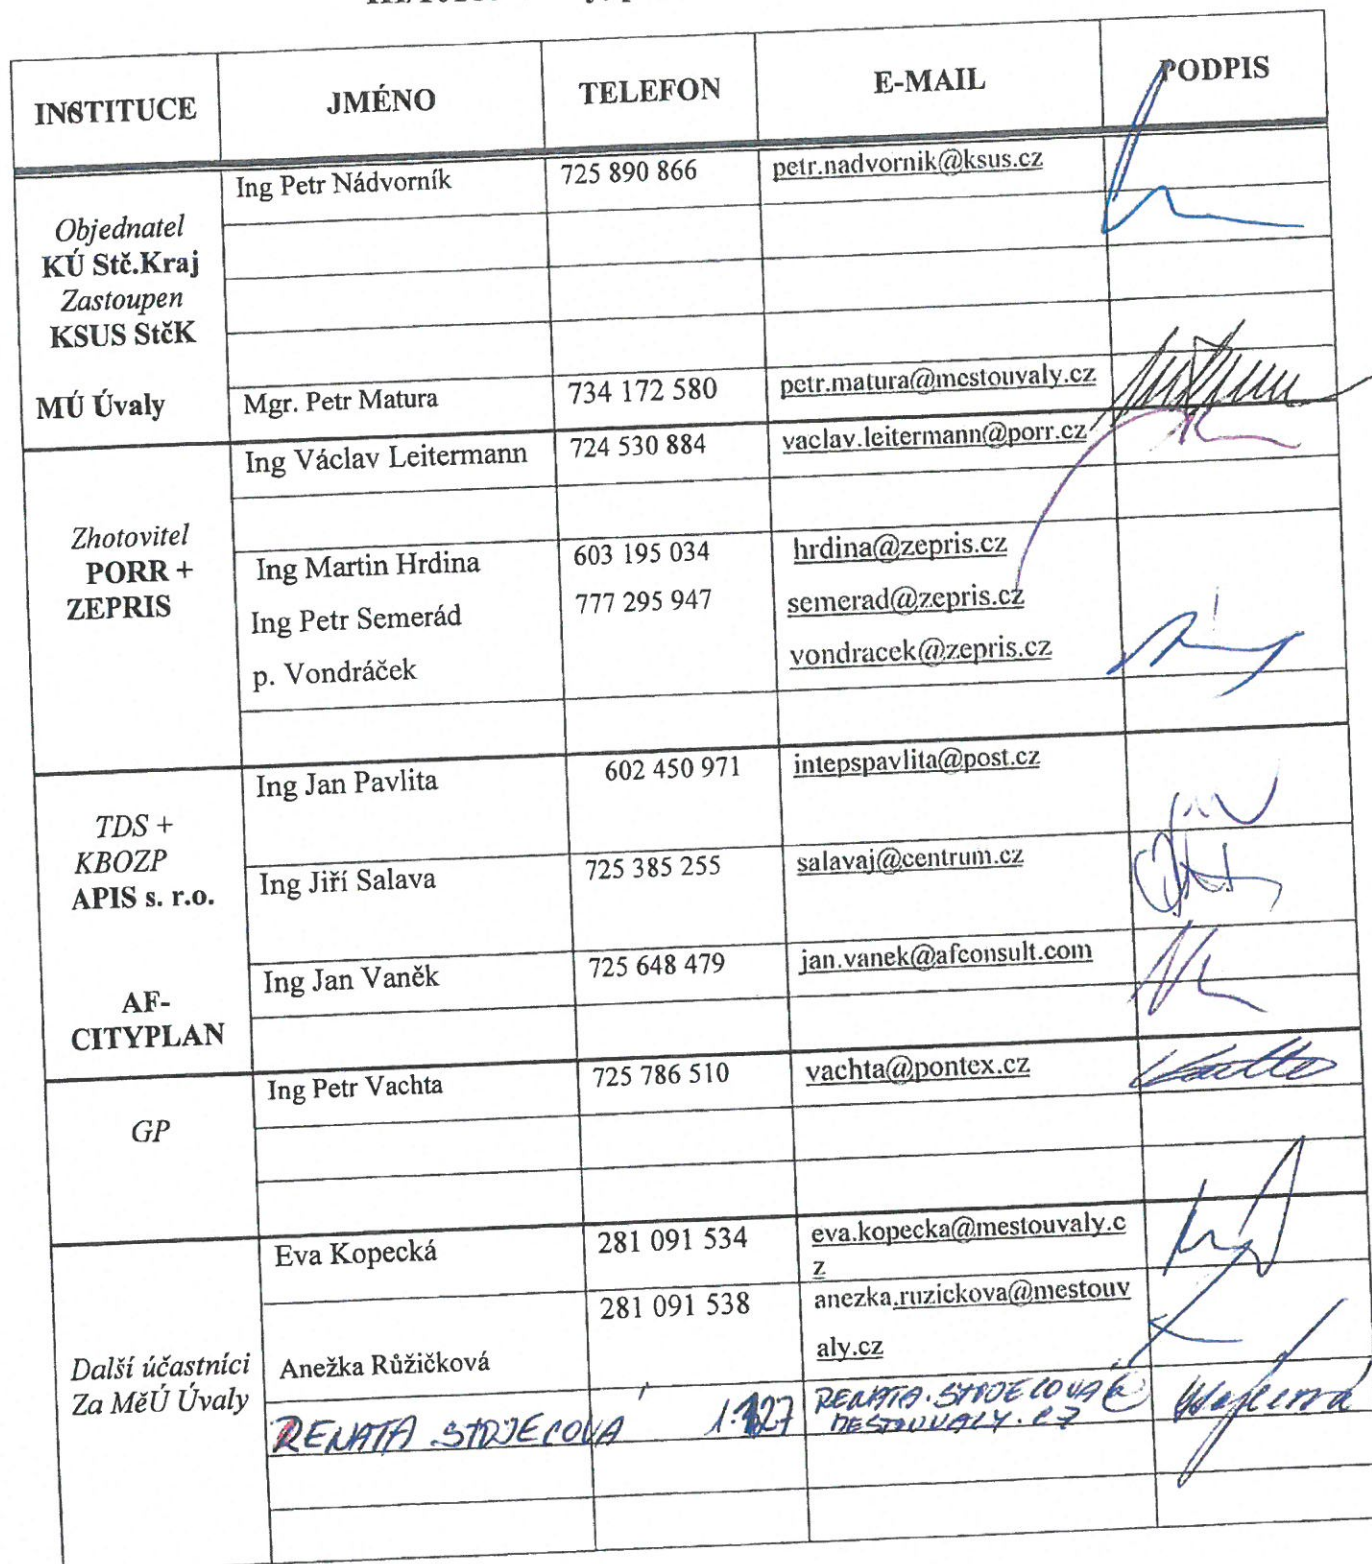 INSTITUCE JMÉNO TELEFON E-MAIL PODPIS
Objednatel
KÚ Stč.Kraj
Zastoupen
KSUS StčK
Ing Petr Nádvorník 725 890 866 petr.nadvornik@ksus.cz
MÚ Úvaly Mgr. Petr Matura 734 172 580 petr.matura@mestouvaly.cz
Zhotovitel
PORR +
ZEPRIS
Ing Václav Leitermann 724 530 884 vaclav.leitermann@porr.cz
Ing Martin Hrdina 603 195 034 hrdina@zepris.cz
Ing Petr Semerád 777 295 947 semerad@zepris.cz
p. Vondráček vondracek@zepris.cz
TDS +
KBOZP
APIS s. r.o.
Ing Jan Pavlita 602 450 971 intepspavlita@post.cz
Ing Jiří Salava 725 385 255 salavaj@centrum.cz
AF-
CITYPLAN
Ing Jan Vaněk 725 648 479 jan.vanek@afconsult.com
GP
Ing Petr Vachta 725 786 510 vachta@pontex.cz
Další účastníci
Za MěÚ Úvaly
Eva Kopecká 281 091 534 eva.kopecka@mestouvaly.c
z
Anežka Růžičková 281 091 538 anezka.ruzickova@mestouv
aly.cz
RENATA